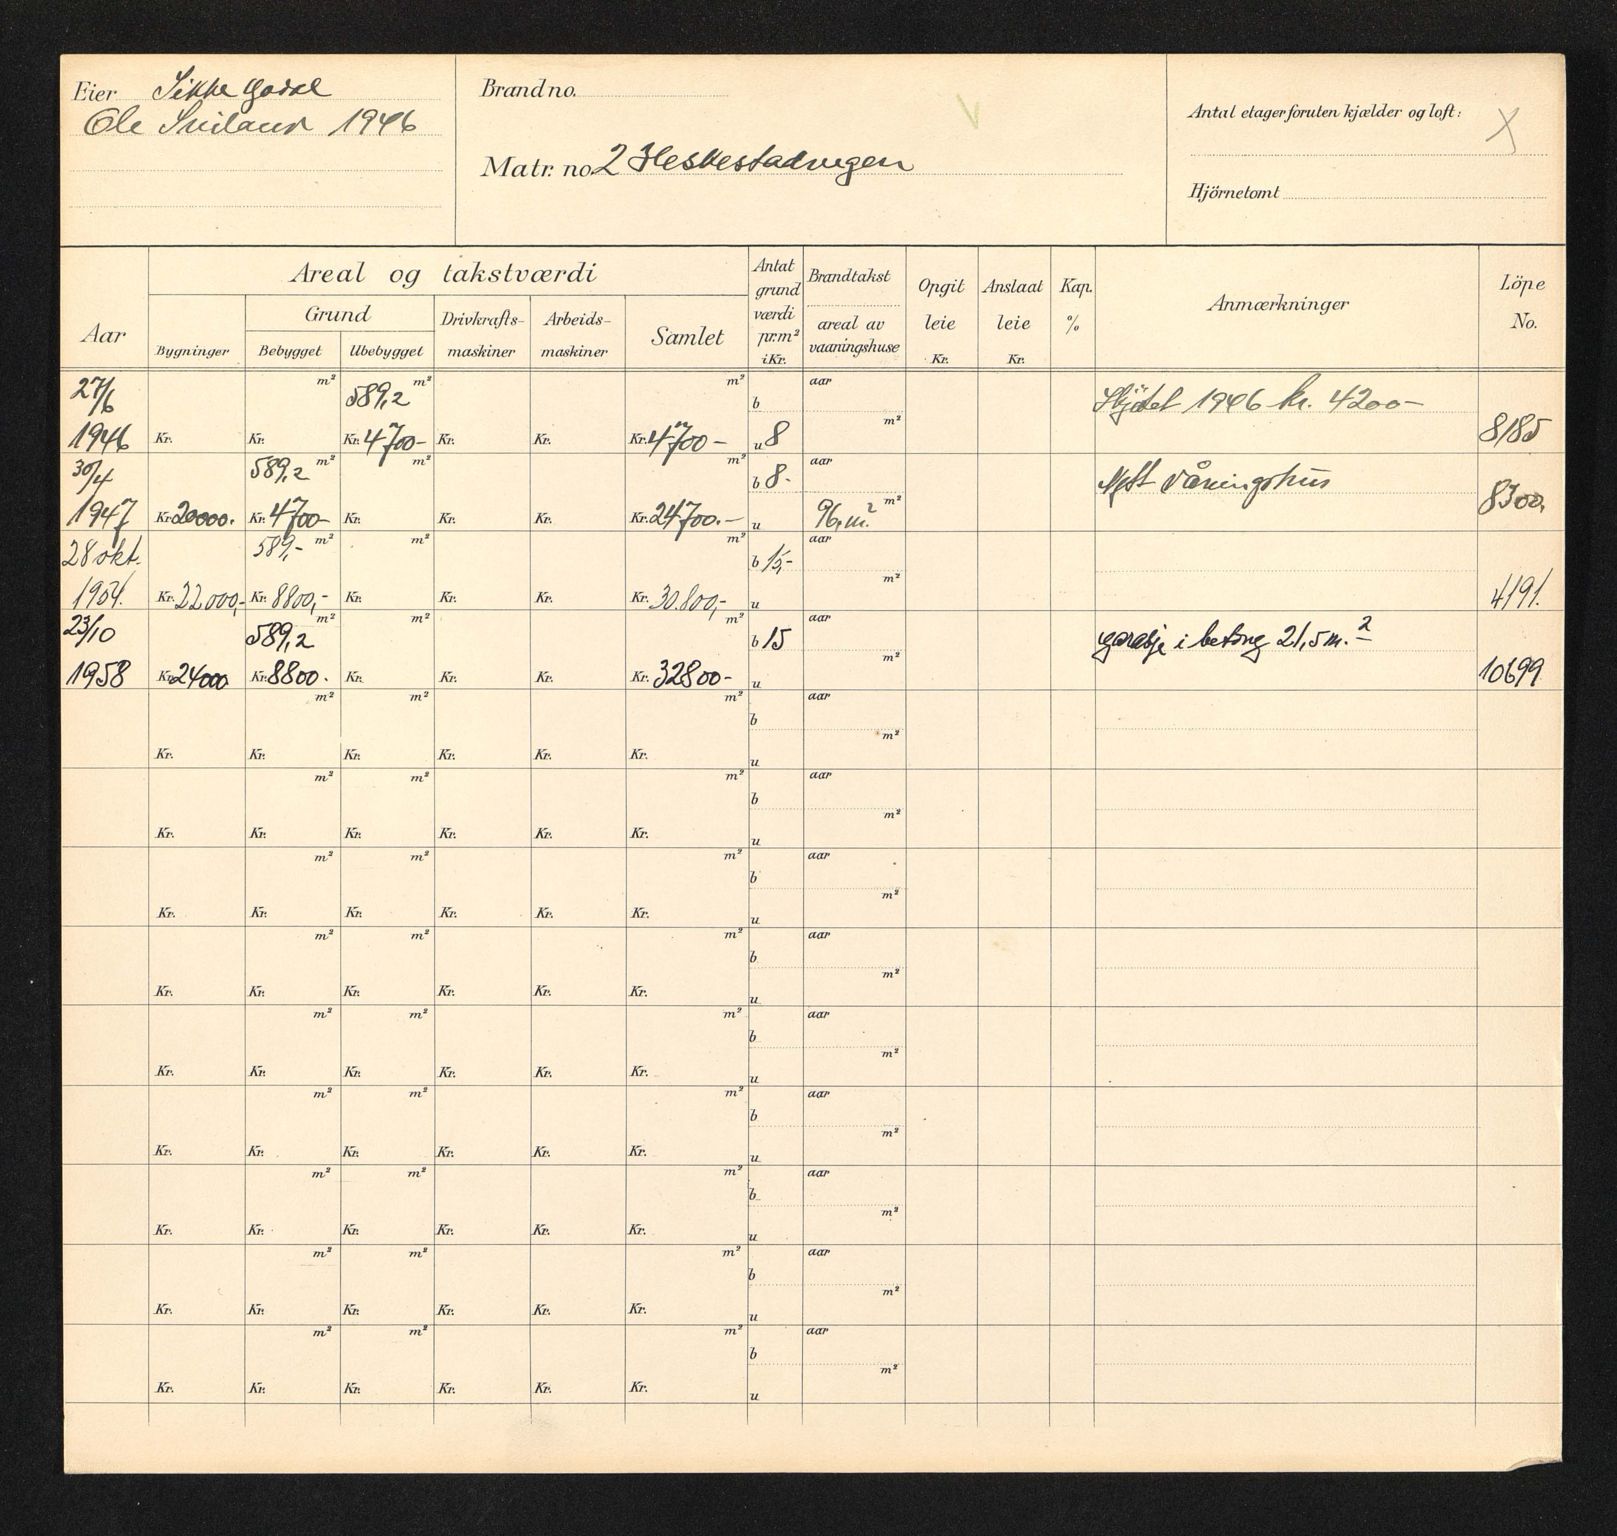 Eier Sikke Godal
Ole Sviland 1946
Brand no.
Matr. no. 2 Heskestadvegen
Antal etager foruten kjælder og loft:
Hjörnetomt
Areal og takstværdi
Aar
Bygninger
Grund
Bebygget
Ubebygget
Drivkrafts-maskiner
Arbeids-maskiner
Samlet
Antat grund værdi pr.m² i Kr.
Brandtakst
areal av vaaningshuse
Opgit leie Kr.
Anslaat leie Kr.
Kap. %
Anmærkninger
Löpe No.
27/6 m² 589,2 m² m² b aar Skjötet 1946 kr. 4200-
1946 Kr. Kr. Kr. 4700- Kr. Kr. Kr. 4700- u 8 m² 8185
30/4 589,2 m² m² m² b 8.- aar Nytt våningshus
1947 Kr. 20000. Kr. 4700- Kr. Kr. Kr. Kr. 24700.- u 96,m.² m² 8300.
28 okt. 589,- m² m² m² b 15,- aar
1954. Kr. 22000,- Kr. 8800,- Kr. Kr. Kr. Kr. 30.800,- u m² 4191.
23/10 589,2 m² m² m² b 15 aar garasje i betong 21,5 m.²
1958 Kr. 24000 Kr. 8800. Kr. Kr. Kr. Kr. 32800- u m² 10699
m² m² m² b aar
Kr. Kr. Kr. Kr. Kr. Kr. u m²
m² m² m² b aar
Kr. Kr. Kr. Kr. Kr. Kr. u m²
m² m² m² b aar
Kr. Kr. Kr. Kr. Kr. Kr. u m²
m² m² m² b aar
Kr. Kr. Kr. Kr. Kr. Kr. u m²
m² m² m² b aar
Kr. Kr. Kr. Kr. Kr. Kr. u m²
m² m² m² b aar
Kr. Kr. Kr. Kr. Kr. Kr. u m²
m² m² m² b aar
Kr. Kr. Kr. Kr. Kr. Kr. u m²
m² m² m² b aar
Kr. Kr. Kr. Kr. Kr. Kr. u m²
m² m² m² b aar
Kr. Kr. Kr. Kr. Kr. Kr. u m²